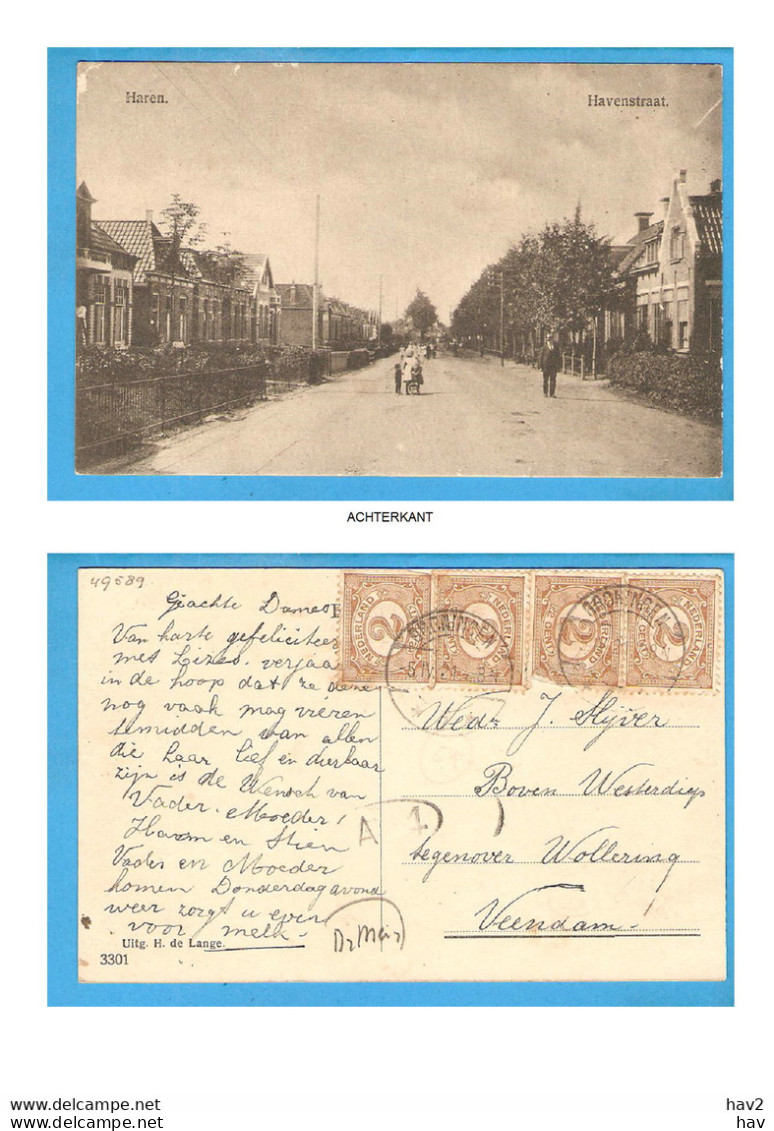 Haren.
Havenstraat.
ACHTERKANT
49589
Geachte Dames
Van harte gefeliciteer
met verjaa
in de hoop dat ze deze
nog vaak mag vieren
temidden van allen
die haar lief en dierbaar
zijn is de Wensch van
Vader. Moeder!
Harm en Stien
Vader en Moeder
komen Donderdagavond
weer zorgt u even
voor melk.
Uitg. H. de Lange.
3301
NEDERLAND 2 CENT
2 NEDERLAND
GRONINGEN
NEDERLAND 2 CENT
2 NEDERLAND
GRONINGEN
Wedr J. Slijver
Boven Westerdiep
tegenover Woltering
Veendam!
A 1
hav2
https://www.delcampe.net/de/sammlerobjekte/store/hav2
hav